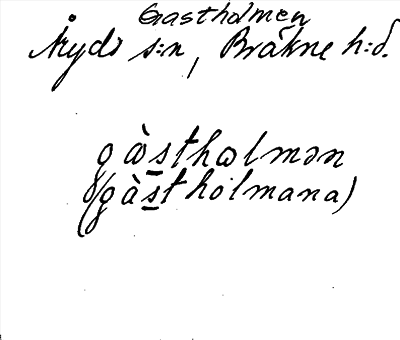 Gastholmen
Åryds s:n, Bräkne h:d.
gàstholmən
(gàsthòlmana)